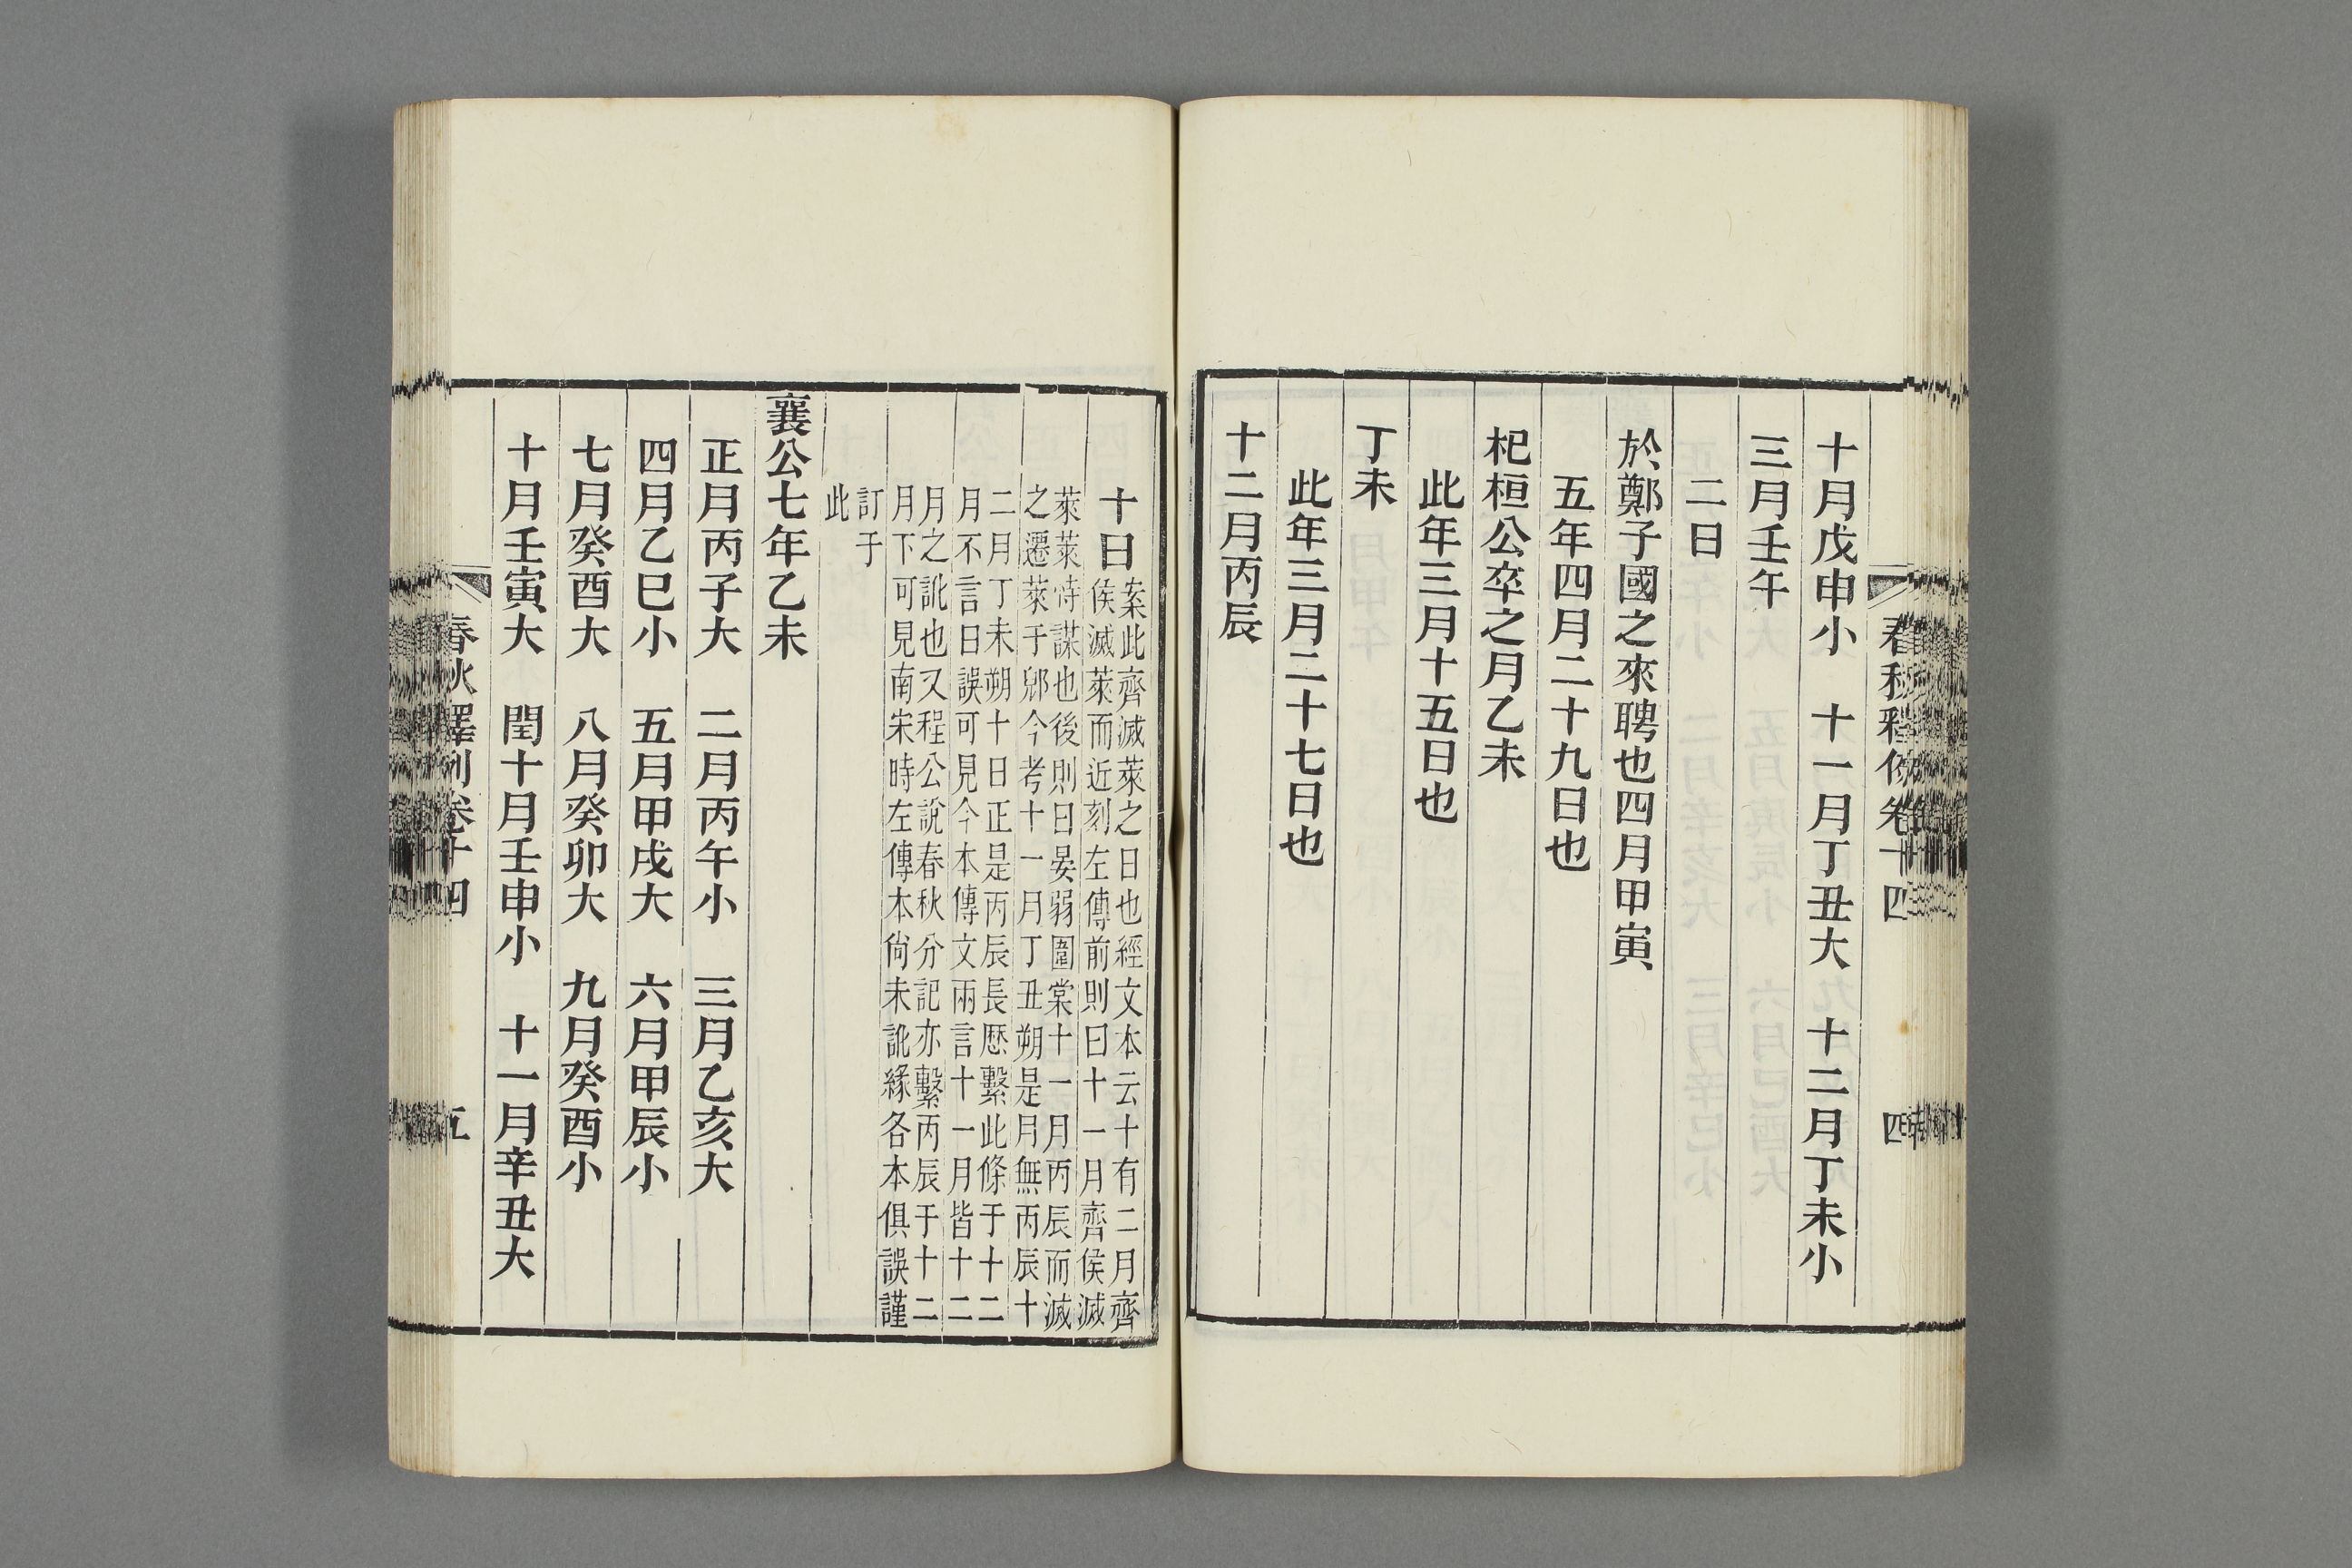 春秋釋例卷十四 四
十月戊申小 十一月丁丑大 十二月丁未小
三月壬午
二日
於鄭子國之來聘也四月甲寅
五年四月二十九日也
杞桓公卒之月乙未
此年三月十五日也
丁未
此年三月二十七日也
十二月丙辰
十日
案此齊滅萊之日也經文本云十有二月齊
侯滅萊而近刻左傳前則曰十一月齊侯滅
萊萊恃謀也後則曰晏弱圍棠十一月丙辰而滅
之遷萊于郳今考十一月丁丑朔是月無丙辰十
二月丁未朔十日正是丙辰長厯繫此條于十二
月不言日誤可見今本傳文兩言十一月皆十二
月之訛也又程公說春秋分記亦繫丙辰于十二
月下可見南宋時左傳本尙未訛緣各本俱誤謹
訂于
此
襄公七年乙未
正月丙子大 二月丙午小 三月乙亥大
四月乙巳小 五月甲戌大 六月甲辰小
七月癸酉大 八月癸卯大 九月癸酉小
十月壬寅大 閏十月壬申小 十一月辛丑大
春秋釋例卷十四 五